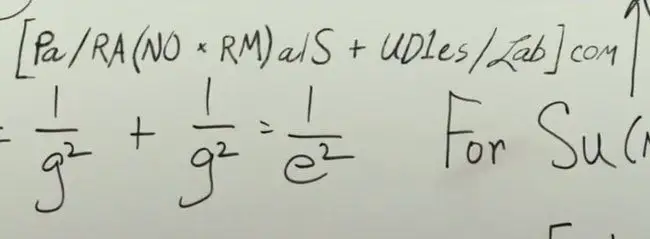 [Pa/RA(NO * RM)alS + UD1es/Lab]COM
1/g² + 1/g² = 1/e² For Su(